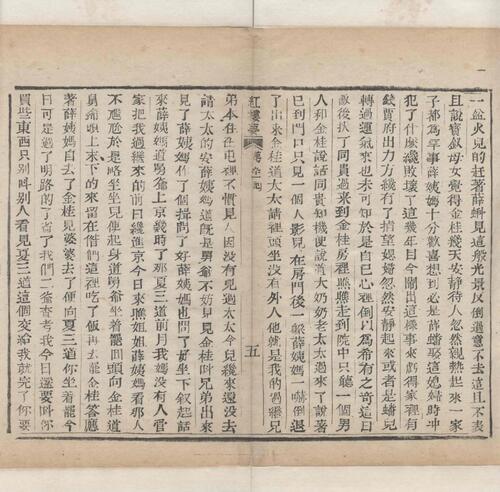 一盆火兒的赶著薛蝌見這般光景反倒過意不去這且不表
且說寶釵母女覺得金桂幾天安靜待人忽然親熱起來一家
子都為罕事薛姨媽十分歡喜想到必是薛蟠娶這媳婦時冲
犯了什麼纔敗壞了這幾年目今鬧出這樣事來虧得家裡有
錢賈府出力方纔有了指望媳婦忽然安靜起來或者是蟠兒
轉過運氣來也未可知於是自己心裡倒以為希有之竒這日
飯後扶了同貴過來到金桂房裡瞧瞧走到院中只聽一個男
人和金桂說話同貴知機便說道大奶奶老太太過來了說著
已到門口只見一個人影兒在房門後一躲薛姨媽一嚇倒退
了出來金桂道太太請裡頭坐沒有外人他就是我的過繼兄
紅樓夢
五
弟本住在屯裡不慣見人因沒有見過太太今兒纔來還沒去
請太太的安薛姨媽道既是舅爺不妨見見金桂呌兄弟出來
見了薛姨媽作了個揖問了好薛姨媽也問了好坐下叙起話
來薛姨媽道舅爺上京幾時了那夏三道前月我媽沒有人管
家把我過繼來的前日纔進京今日來瞧姐姐薛姨媽看那人
不尷尬於是畧坐坐兒便起身道舅爺坐著罷囬頭向金桂道
舅爺頭上末下的來留在偺們這裡吃了飯再去罷金桂答應
著薛姨媽自去了金桂見婆婆去了便向夏三道你坐著罷今
日可是過了明路的了省了我們二爺查考我今日還要呌你
買些東西只别呌别人看見夏三道這個交給我就完了你要